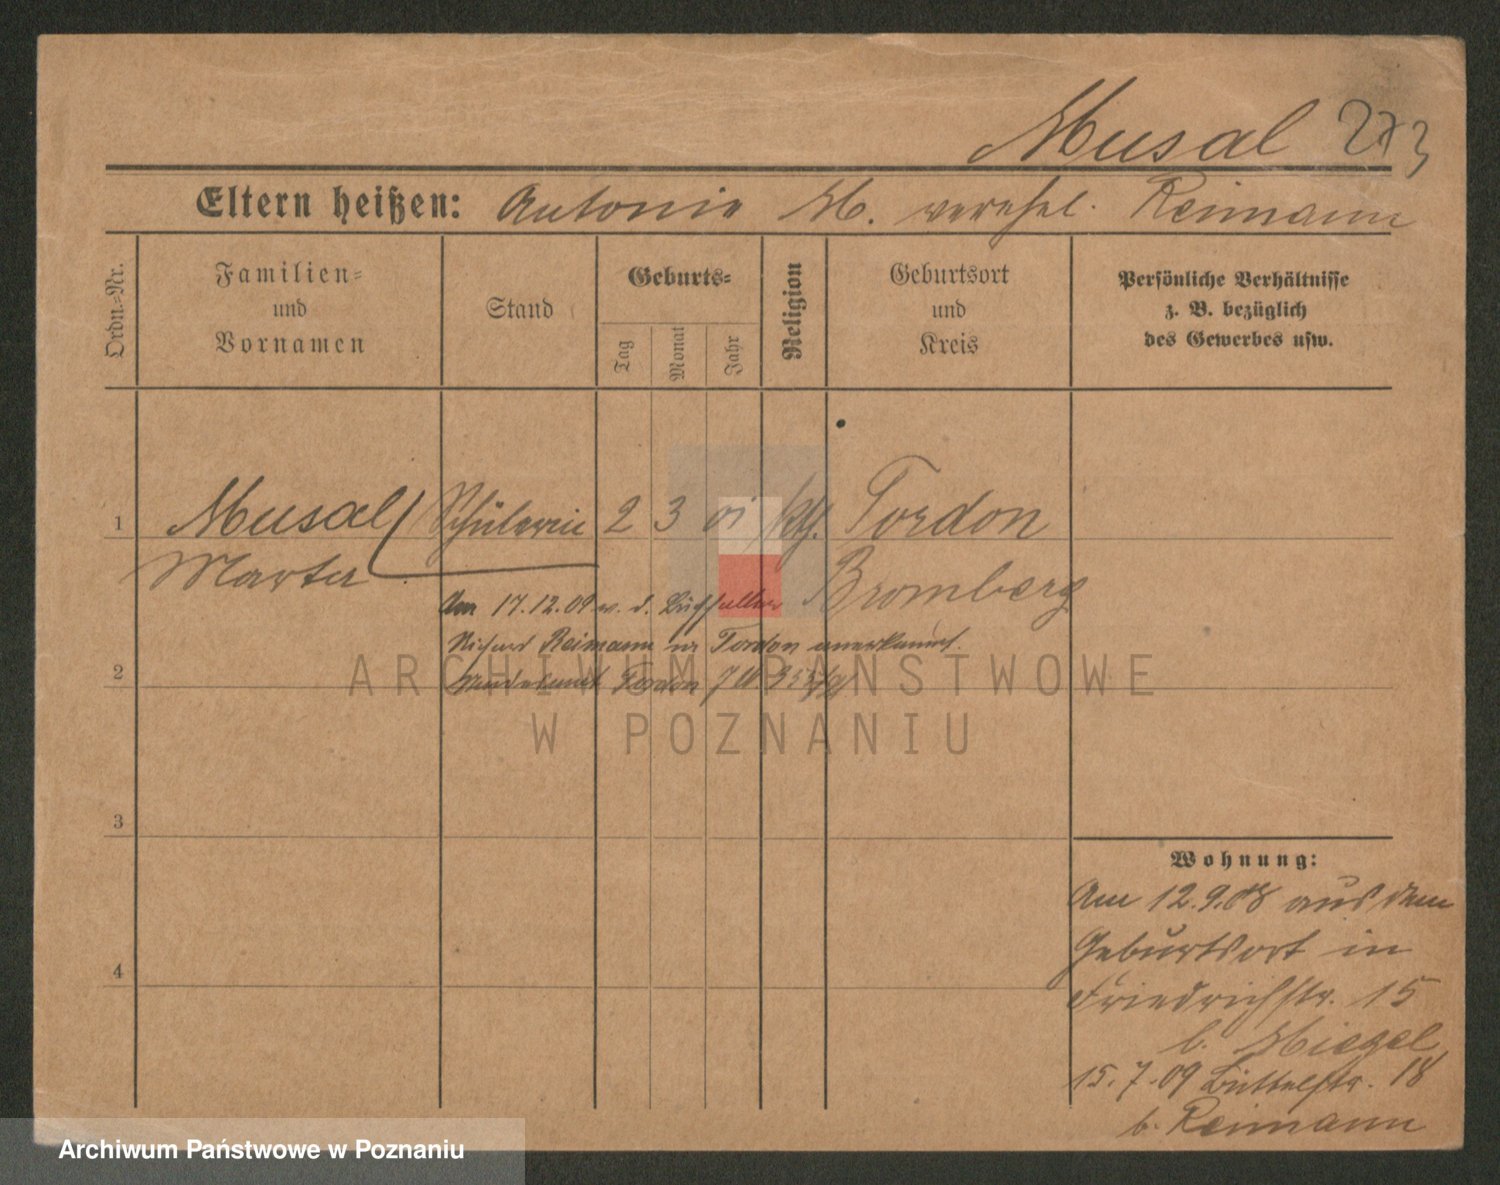 Musal 273
Eltern heißen: Antonie M. verehel. Reimann
Ordn.=Nr.
Familien=
und
Vornamen
Stand
Geburts=
Tag
Monat
Jahr
Religion
Geburtsort
und
Kreis
Persönliche Verhältnisse
z. B. bezüglich
des Gewerbes usw.
1 Musal Schülerin 2 3 01 kth. Fordon
Marta Bromberg
Am 17.12.09 v. d.
Richard Reimann in Fordon anerkannt.
Standesamt Fordon
2
3
4
Wohnung:
Am 12.9.08 aus dem
Geburtsort in
Friedrichstr. 15
b. Miegel
15.7.09 Büttelstr. 18
b. Reimann
ARCHIWUM PAŃSTWOWE
W POZNANIU
Archiwum Państwowe w Poznaniu